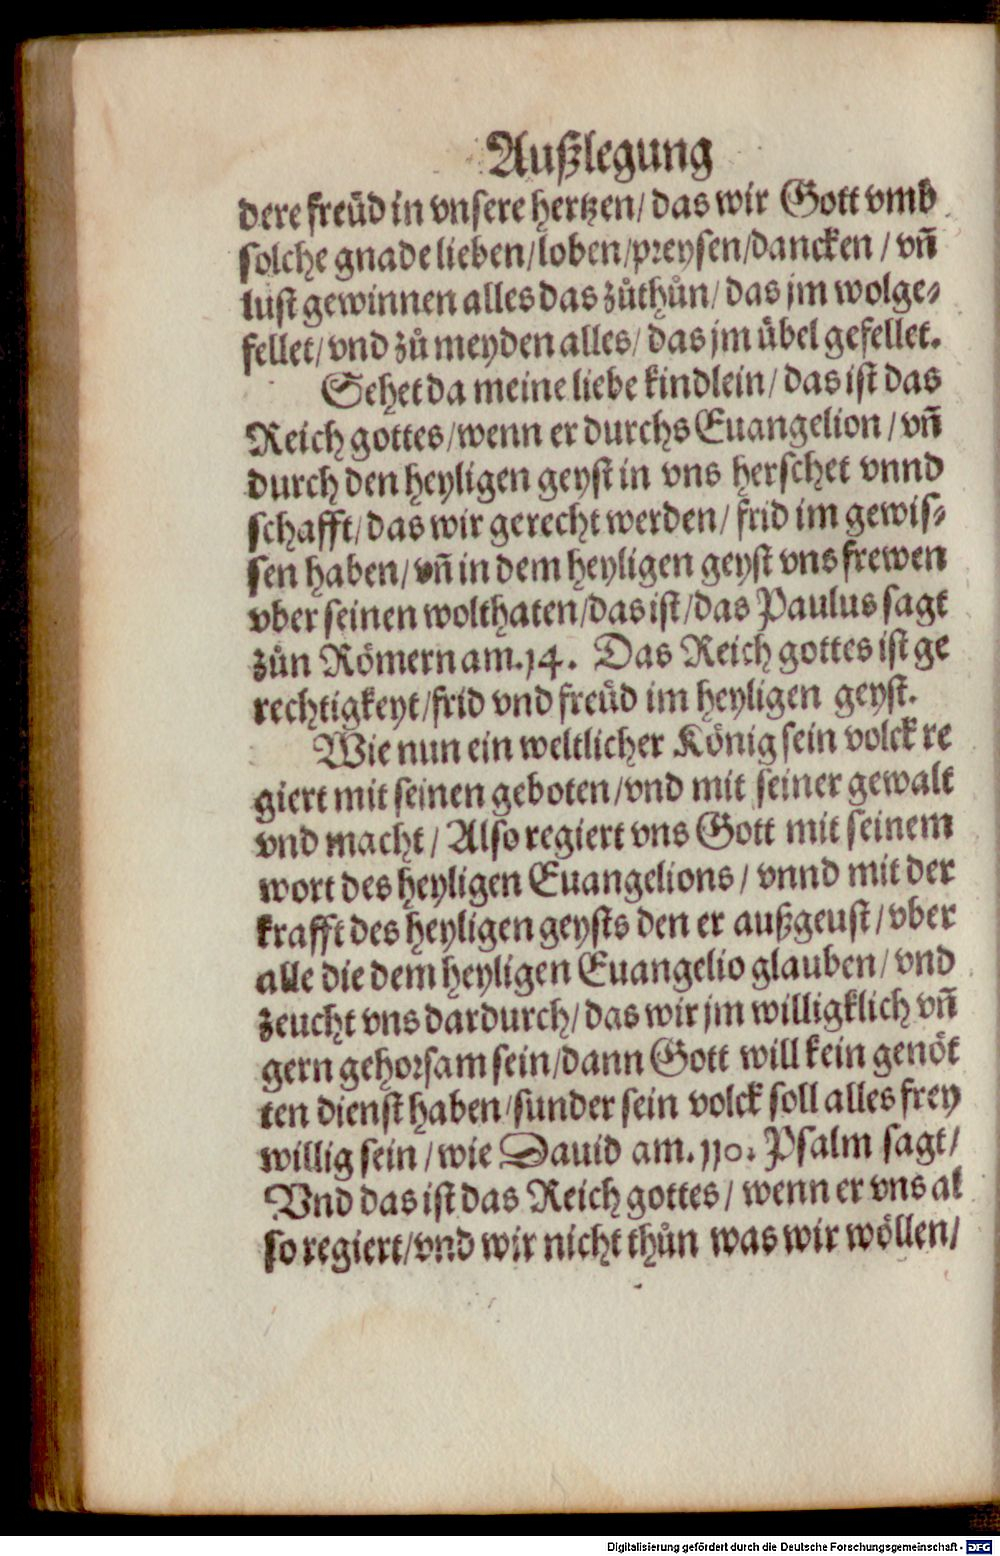 Außlegung
dere freüd in vnsere hertzen/ das wir Gott vmb
solche gnade lieben/loben/preysen/dancken / vn̄
lust gewinnen alles das zůthůn/ das jm wolge-
fellet/ vnd zů meyden alles/ das jm übel gefellet.
Sehet da meine liebe kindlein/ das ist das
Reich gottes/wenn er durchs Euangelion / vn̄
durch den heyligen geyst in vns herschet vnnd
schafft/ das wir gerecht werden/ frid im gewis-
sen haben/ vn̄ in dem heyligen geyst vns frewen
vber seinen wolthaten/das ist/das Paulus sagt
zůn Römern am.14. Das Reich gottes ist ge
rechtigkeyt/frid vnd freüd im heyligen geyst.
Wie nun ein weltlicher König sein volck re
giert mit seinen geboten/vnd mit seiner gewalt
vnd macht/ Also regiert vns Gott mit seinem
wort des heyligen Euangelions / vnnd mit der
krafft des heyligen geysts den er außgeust/ vber
alle die dem heyligen Euangelio glauben/ vnd
zeucht vns dardurch/ das wir jm willigklich vn̄
gern gehorsam sein/dann Gott will kein genöt
ten dienst haben/sunder sein volck soll alles frey
willig sein / wie Dauid am. 110. Psalm sagt/
Vnd das ist das Reich gottes / wenn er vns al
so regiert/vnd wir nicht thůn was wir wöllen/
Digitalisierung gefördert durch die Deutsche Forschungsgemeinschaft - DFG